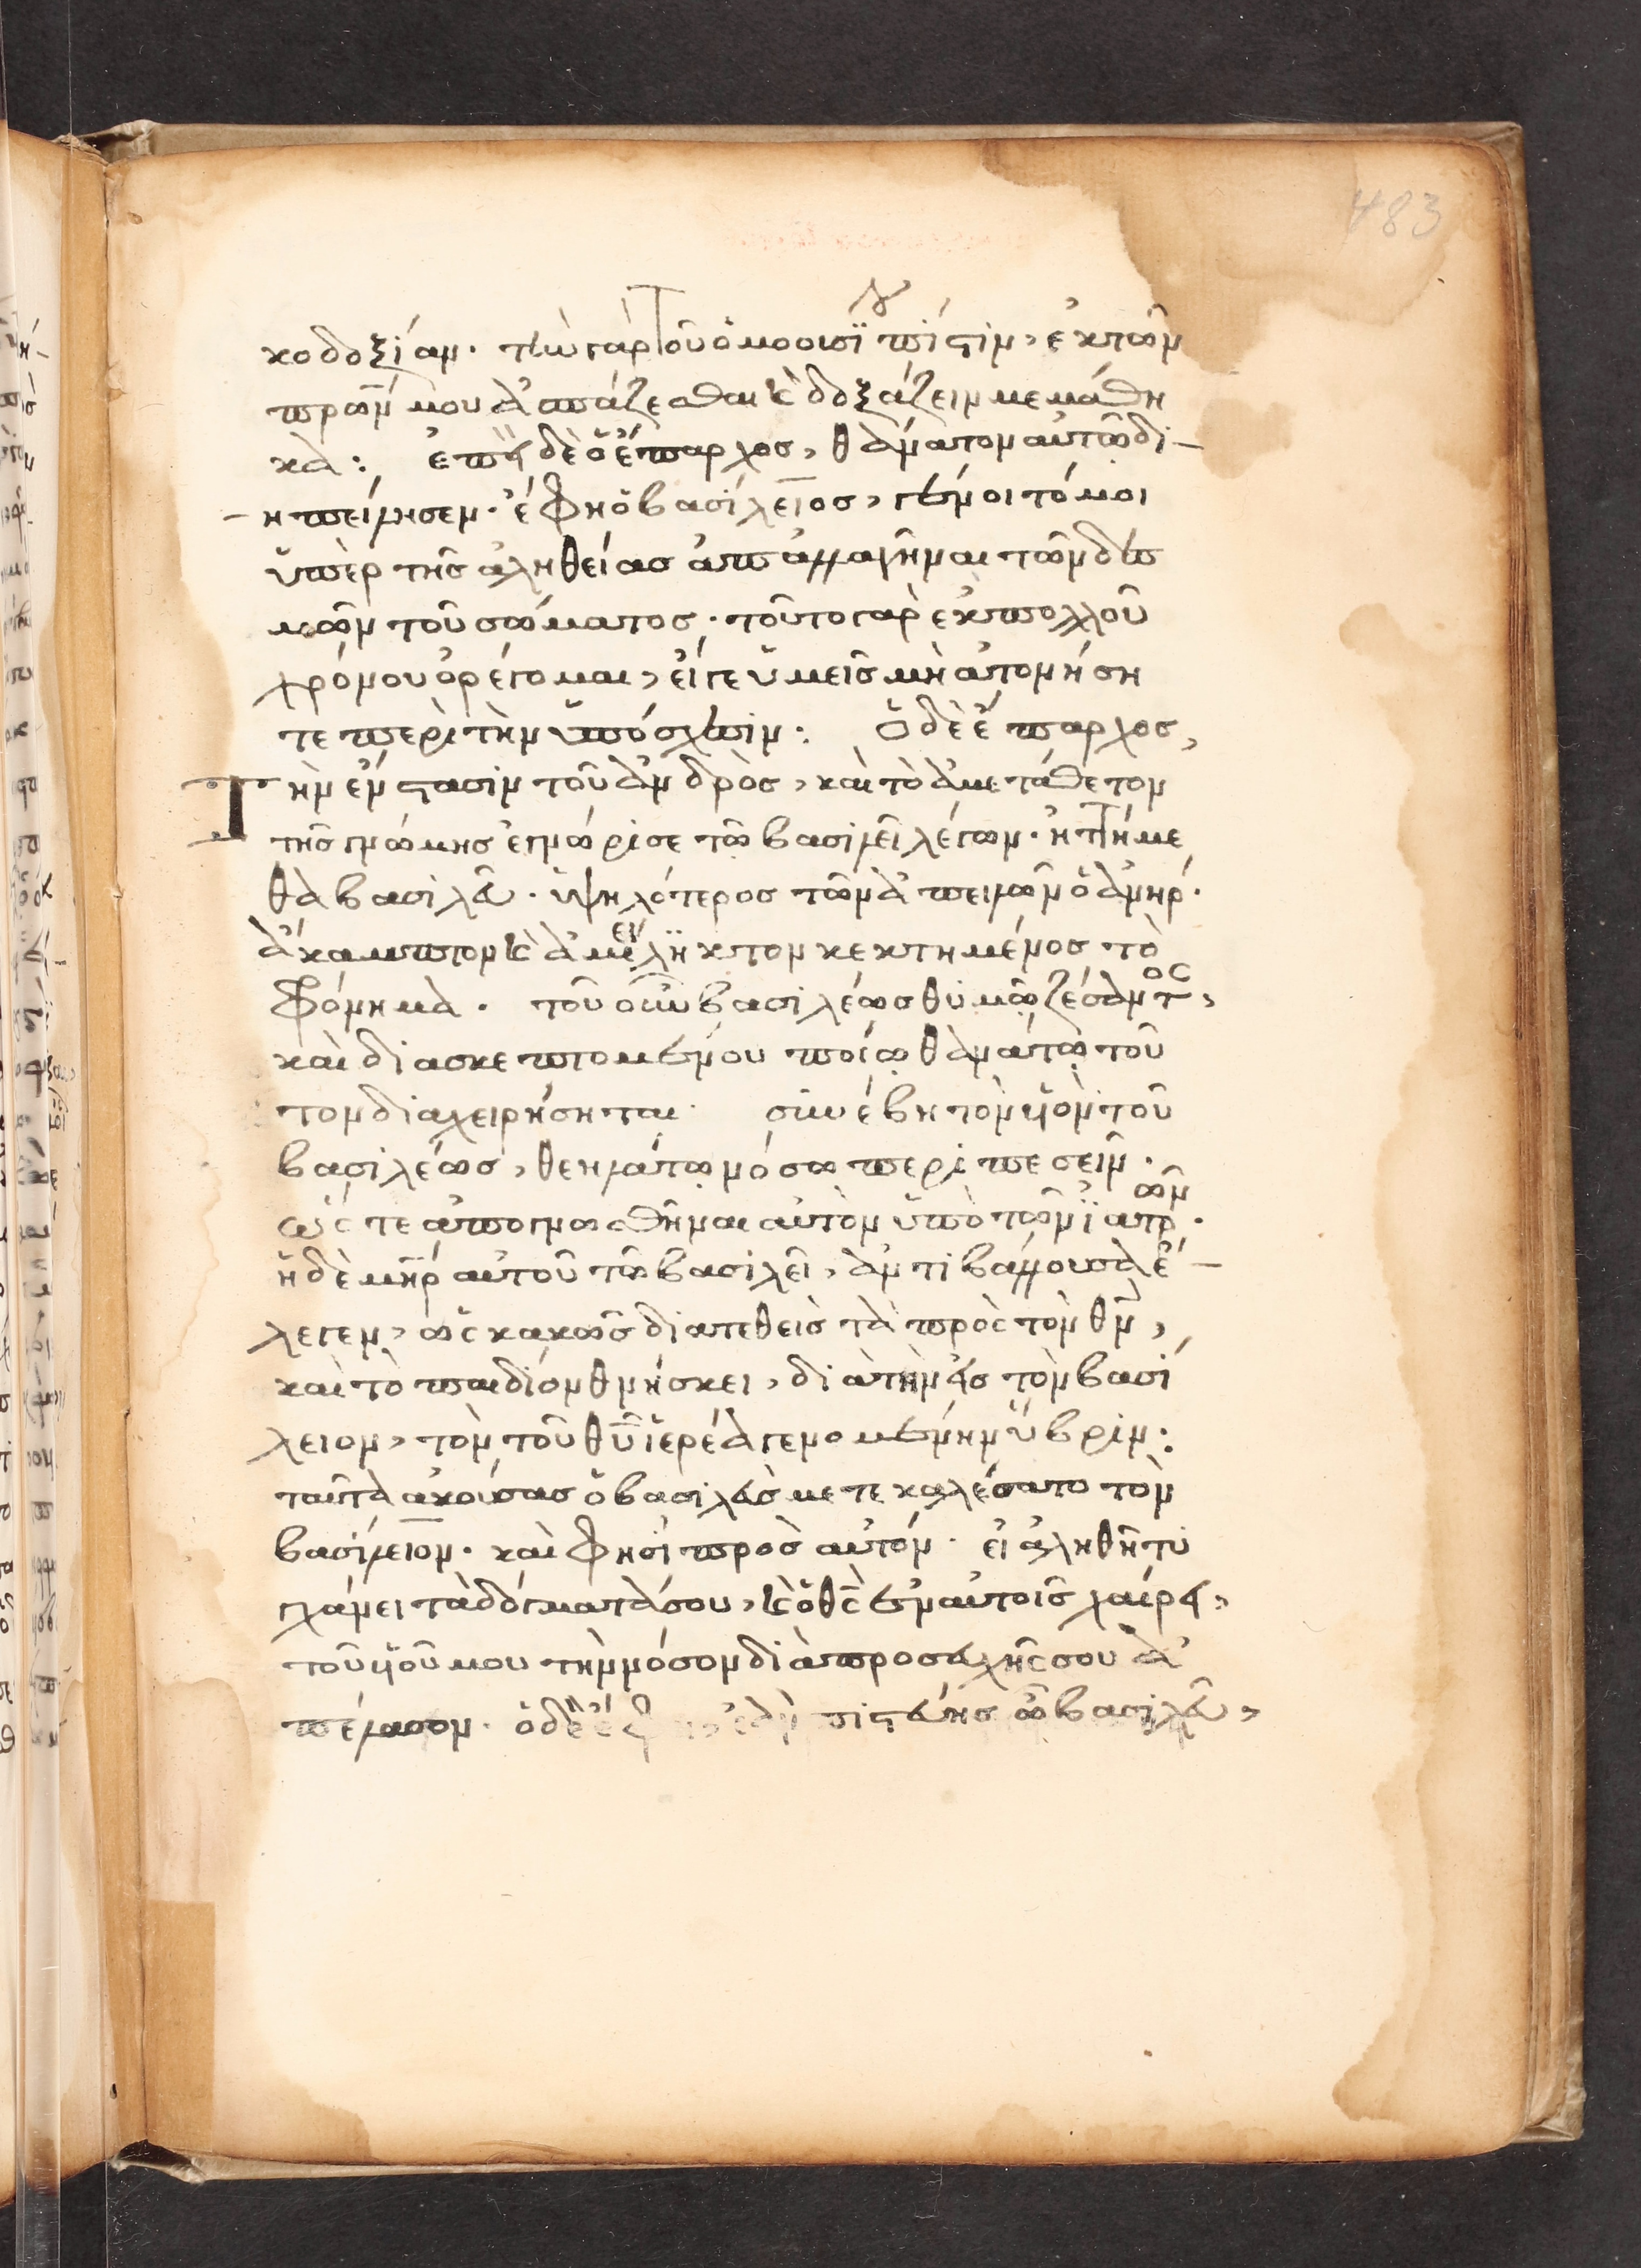 483
κοδοξίαν. τὴν γὰρ τοῦ ὁμοουσϊου πίστιν, ἐκ τῶν
πρων μου ἀσπάζεσθαι κ δοξάζειν μεμάθη
κα: ἐπεὶ δὲ ὁ ἔπαρχος, θάνατον αὐτῶ δι
ηπείλησεν. ἔφη ὁ βασίλειος, γένοιτό μοι
ὑπὲρ τῆς ἀληθείας ἀπαλλαγῆναι τῶν δεσ
μῶν τοῦ σώματος. τοῦτο γὰρ ἐκ πολλοῦ
χρόνου ὀρέγομαι, εἴγε ὑμεῖς μὴ ἀπονήση
τε περὶ τὴν ὑπόσχεσιν: Ὁ δὲ ἔπαρχος,
Τὴν ἔνστασιν τοῦ ἀνδρὸς, καὶ τὸ ἀμετάθετον
τῆς γνώμης ἐγνώρισε τῶ βασιλεῖ λέγων. ἡττήμε
θα βασιλεῦ. ὑψηλότερος τῶν ἀπειλῶν ὁ ἀνήρ.
ἄκαμπτον κ ἀμείληκτον κεκτημένος τὸ
φρόνημα. τοῦ οὖν βασιλέως θυμῶ ζέσαντος,
καὶ διασκεπτομένου ποίω θανάτω τοῦ
τον διαχειρήσηται. συνέβη τὸν υἱὸν τοῦ
βασιλέως, θεηλάτω νόσω περιπεσεῖν.
ὥς τε ἀπογνωσθῆναι αὐτὸν ὑπὸ τῶν ἰατρῶν.
ἡ δὲ μηρ αὐτοῦ τῶ βασιλεῖ, ἀντιβάλλουσα ἔ
λεγεν, ὡς κακῶς διατεθεὶς τὰ πρὸς τὸν θν,
καὶ τὸ παιδίον θνήσκει, διὰ τὴν εἰς τὸν βασί
λειον, τὸν τοῦ θυ ἱερέα γενομένην ὕβριν:
ταῦτα ἀκούσας ὁ βασιλεὺς μετεκαλέσατο τὸν
βασίλειον. καὶ φησὶ πρὸς αὐτόν. εἰ ἀληθῆ τυ
γχάνει τὰ δόγματά σου, κ ὁ θς ἐν αὐτοῖς χαίρει,
τοῦ υἱοῦ μου τὴν νόσον διὰ προσευχῆς σου ἀ
πέλασον. ὁ δὲ ἔφη, ἐὰν πιστεύης ὦ βασιλεῦ,